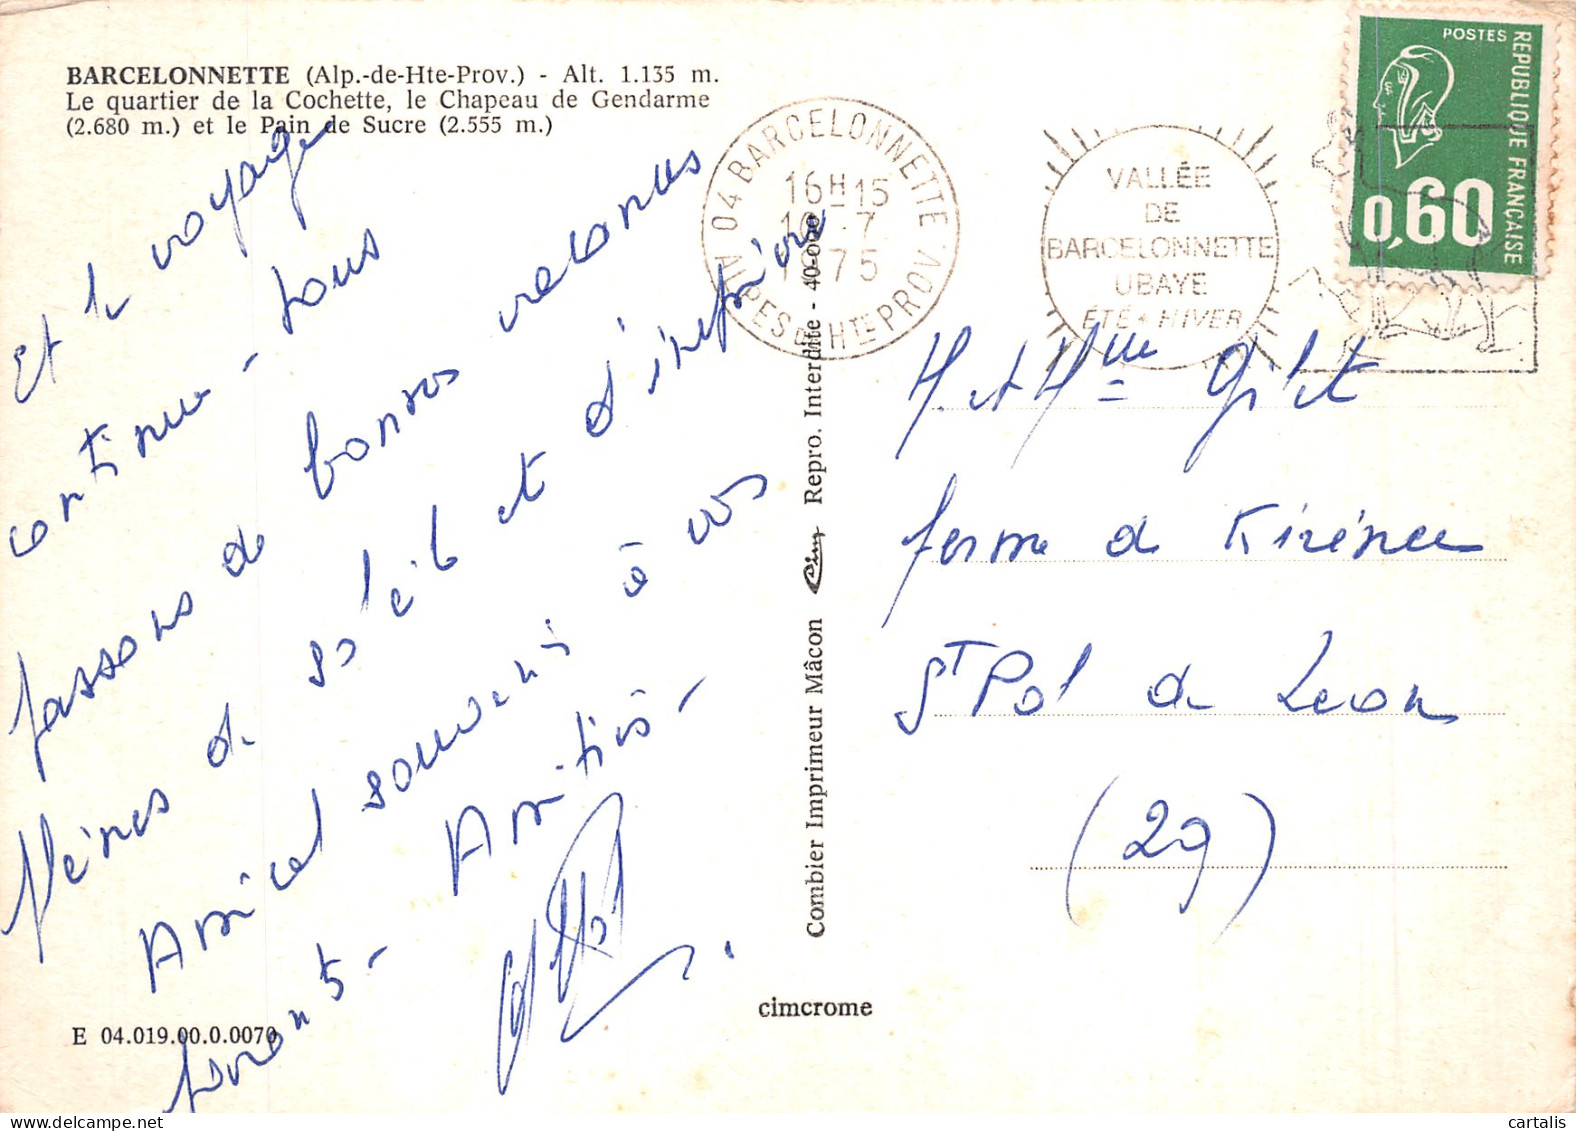 BARCELONNETTE (Alp.-de-Hte-Prov.) - Alt. 1.135 m.
Le quartier de la Cochette, le Chapeau de Gendarme
(2.680 m.) et le Pain de Sucre (2.555 m.)
Et le voyage
continue - nous
passons de bonnes vacances
pleines de soleil et d'imprévu
Amical souvenir à vos
parents - Amitiés -
E 04.019.00.0.0070
cimcrome
Combier Imprimeur Mâcon Cim Repro. Interdite - 40-000
04 BARCELONNETTE
16H15
7
1975
ALPES DE HTE PROV.
VALLÉE
DE
BARCELONNETTE
UBAYE
ÉTÉ + HIVER
POSTES
REPUBLIQUE FRANÇAISE
0,60
M. et Mme
ferme de
St Pol de Leon
(29)
cartalis